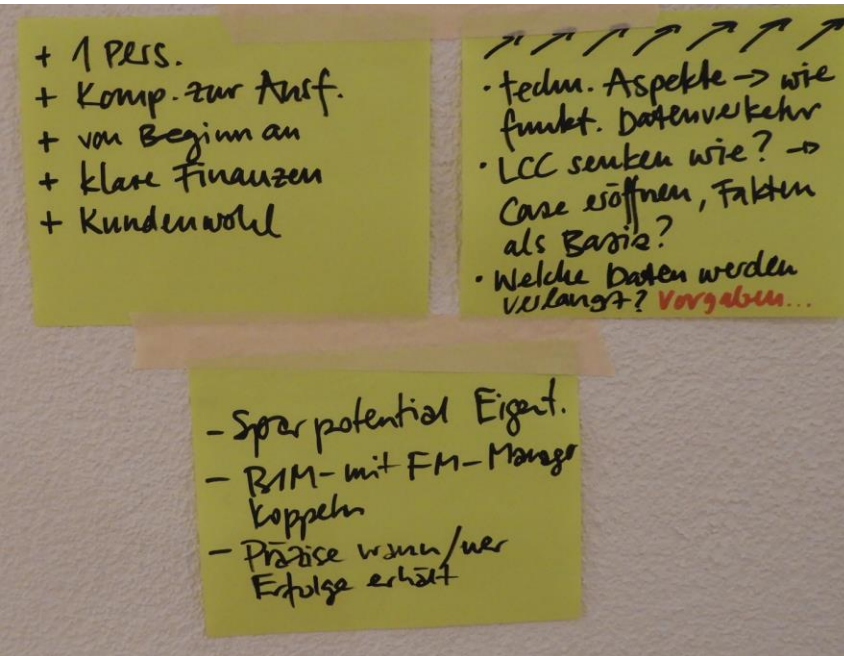 + 1 Pers.
+ Komp. zur Ausf.
+ von Beginn an
+ klare Finanzen
+ Kundenwohl
· techn. Aspekte → wie
funkt. Datenverkehr
· LCC senken wie? →
Case eröffnen, Fakten
als Basis?
· Welche Daten werden
verlangt? Vorgaben...
- Sparpotential Eigent.
- BIM- mit FM-Manager
koppeln
- Präzise wann/wer
Erfolge erhält